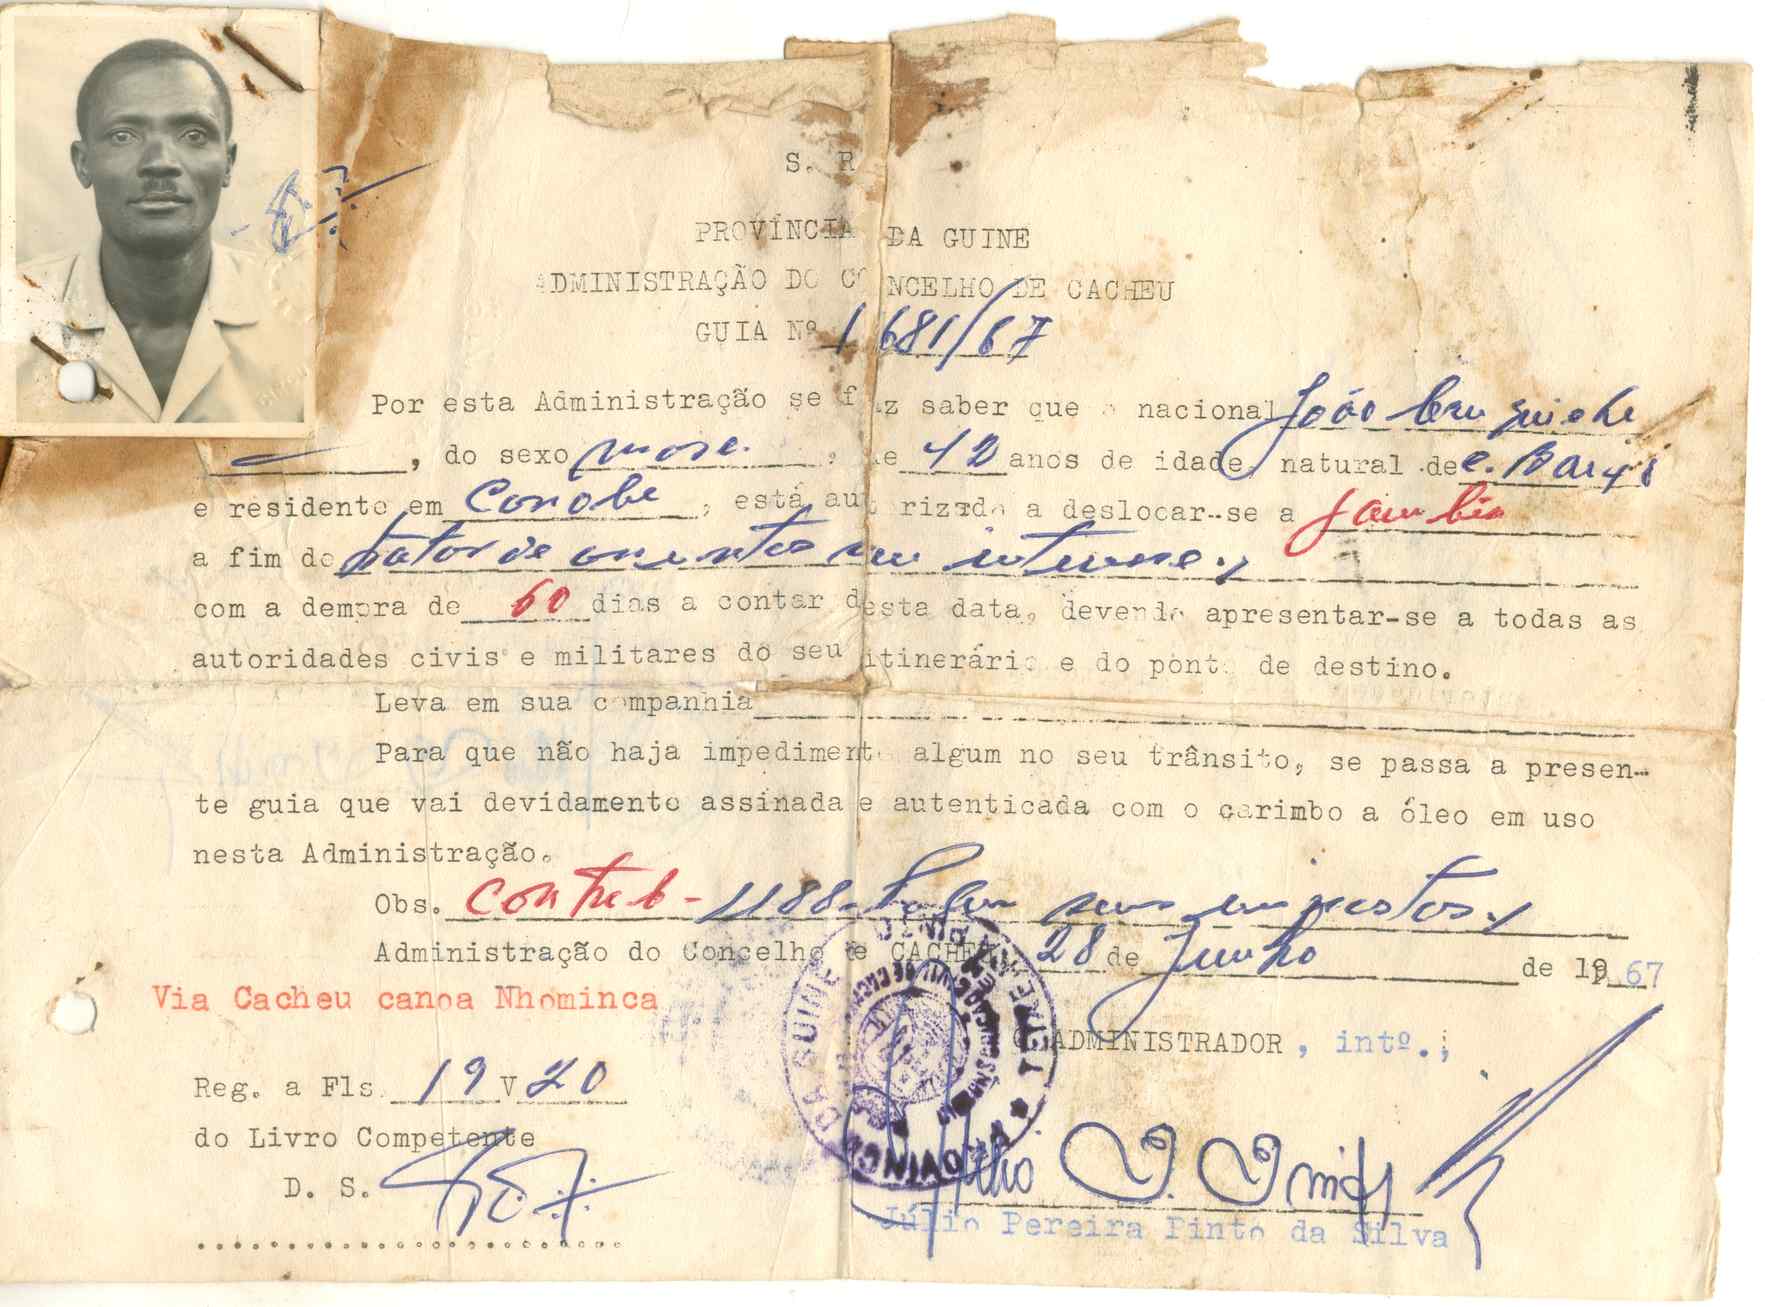 S. R
PROVÍNCIA DA GUINE
ADMINISTRAÇÃO DO CONCELHO DE CACHEU
GUIA Nº 1681/67
Por esta Administração se faz saber que o nacional João
, do sexo masc. , de 42 anos de idade, natural de C.
e residente em Conobe , está autorizado a deslocar-se a Gambia
a fim de tratar de
com a demora de 60 dias a contar desta data, devendo apresentar-se a todas as
autoridades civis e militares do seu itinerário e do ponto de destino.
Leva em sua companhia
Para que não haja impedimento algum no seu trânsito, se passa a presen-
te guia que vai devidamente assinada e autenticada com o carimbo a óleo em uso
nesta Administração.
Obs. Contrib - 1188 - impostos
Administração do Concelho de CACHEU 28 de Junho de 1967
Via Cacheu canoa Nhominca
O ADMINISTRADOR, intº.,
Reg. a Fls. 19 V 20
do Livro Competente
D. S.
PROVINCIA DA GUINE
Júlio Pereira Pinto da Silva